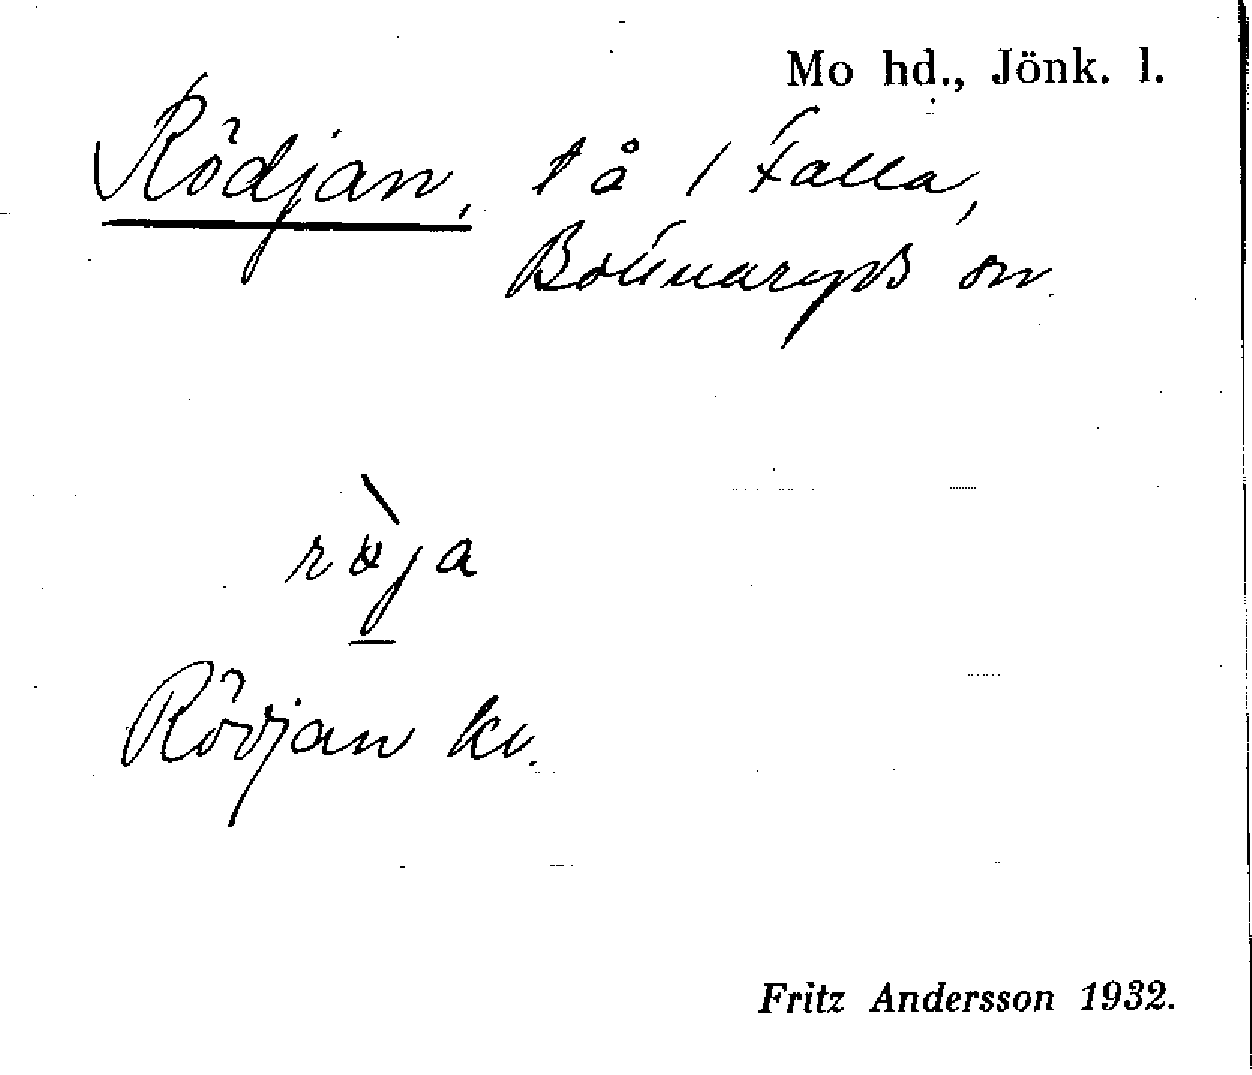 Mo hd., Jönk. l.
Rödjan, t å 1 Falla,
Bottnaryds sn.
röja
Rödjan kv.
Fritz Andersson 1932.